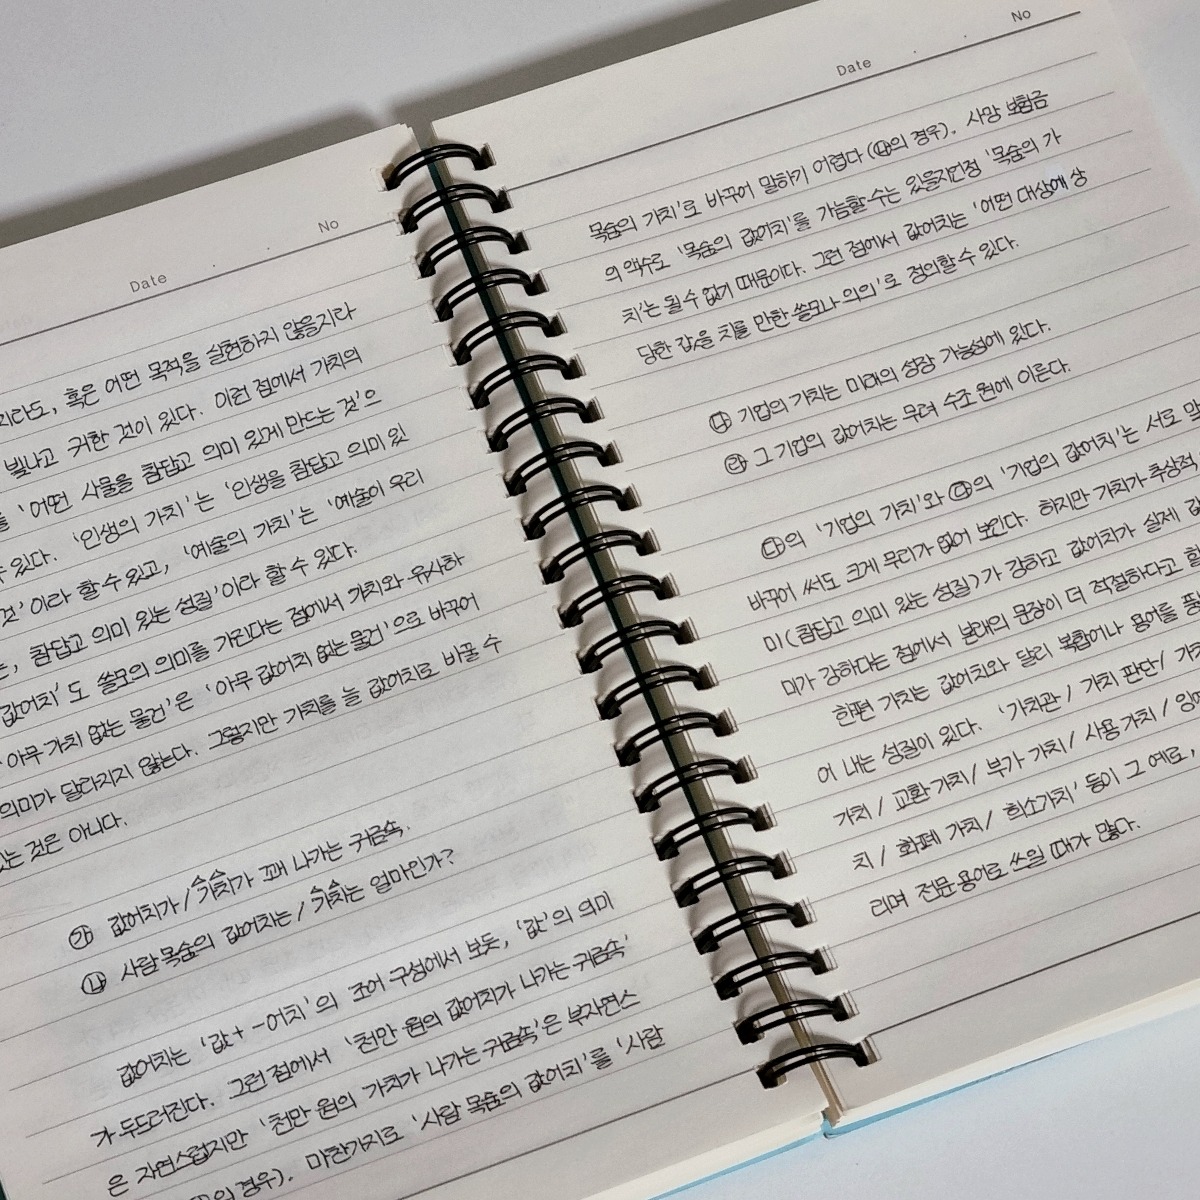 No
Date
지라도, 혹은 어떤 목적을 실현하지 않을지라
빛나고 귀한 것이 있다. 이런 점에서 가치의
를 '어떤 사물을 참답고 의미 있게 만드는 것'으
수 있다. '인생의 가치'는 '인생을 참답고 의미 있
것'이라 할 수 있고, '예술의 가치'는 '예술이 우리
는, 참답고 의미 있는 성질'이라 할 수 있다.
값어치'도 쓸모의 의미를 가진다는 점에서 가치와 유사하
'아무 가치 없는 물건'은 '아무 값어치 없는 물건'으로 바꾸어
의미가 달라지지 않는다. 그렇지만 가치를 늘 값어치로 바꿀 수
있는 것은 아니다.
㉮ 값어치가 / 가치가 꽤 나가는 귀금속.
㉯ 사람 목숨의 값어치는 / 가치는 얼마인가?
값어치는 '값 + -어치'의 조어 구성에서 보듯, '값'의 의미
가 두드러진다. 그런 점에서 '천만 원의 값어치가 나가는 귀금속'
은 자연스럽지만 '천만 원의 가치가 나가는 귀금속'은 부자연스
의 경우). 마찬가지로 '사람 목숨의 값어치'를 '사람
No
Date
목숨의 가치'로 바꾸어 말하기 어렵다 (㉯의 경우). 사망 보험금
의 액수로 '목숨의 값어치'를 가늠할 수는 있을지언정 '목숨의 가
치'는 될 수 없기 때문이다. 그런 점에서 값어치는 '어떤 대상에 상
당한 값을 치를 만한 쓸모나 의의'로 정의할 수 있다.
㉰ 기업의 가치는 미래의 성장 가능성에 있다.
㉱ 그 기업의 값어치는 무려 수조 원에 이른다.
㉰의 '기업의 가치'와 ㉱의 '기업의 값어치'는 서로 맞
바꾸어 써도 크게 무리가 없어 보인다. 하지만 가치가 추상적
미(참답고 의미 있는 성질)가 강하고 값어치가 실제 값
미가 강하다는 점에서 본래의 문장이 더 적절하다고 할
한편 가치는 값어치와 달리 복합어나 용어를 풍
어 내는 성질이 있다. '가치관 / 가치 판단 / 가치
가치 / 교환 가치 / 부가 가치 / 사용 가치 / 잉여
치 / 화폐 가치 / 희소가치' 등이 그 예로,
리며 전문 용어로 쓰일 때가 많다.